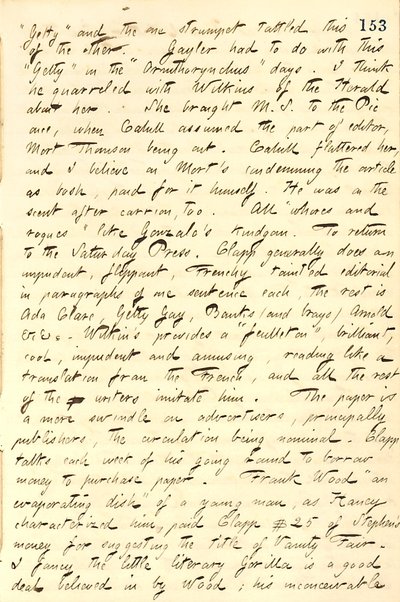 153
"Getty" and the one strumpet tattled this
of the other. Gayler had to do with this
"Getty" in the "Ornithorynchus" days. I think
he quarreled with Wilkins of the Herald
about her. She brought M.S. to the Pic
once, when Cahill assumed the part of editor,
Mort Thomson being out. Cahill flattered her,
and I believe on Mort's condemning the article
as bosh, paid for it himself. He was on the
scent after carrion, too. All "whores and
rogues" like Gonzalo's kingdom. To return
to the Saturday Press. Clapp generally does an
impudent, flippant, Frenchy tainted editorial
in paragraphs of one sentence each, the rest is
Ada Clare, Getty Gay, Banks (and brays) Arnold
&c &c. Wilkins provides a "feuilleton", brilliant,
cool, impudent and amusing, reading like a
translation from the French, and all the rest
of the writers imitate him. The paper is
a mere swindle on advertisers, principally
publishers, the circulation being nominal. Clapp
talks each week of his going round to borrow
money to purchase paper. Frank Wood "an
evaporating dish" of a young man, as Haney
characterized him, paid Clapp $25 of Stephens'
money for suggesting the title of Vanity Fair.
I fancy the little literary Gorilla is a good
deal believed in by Wood; his inconceivable